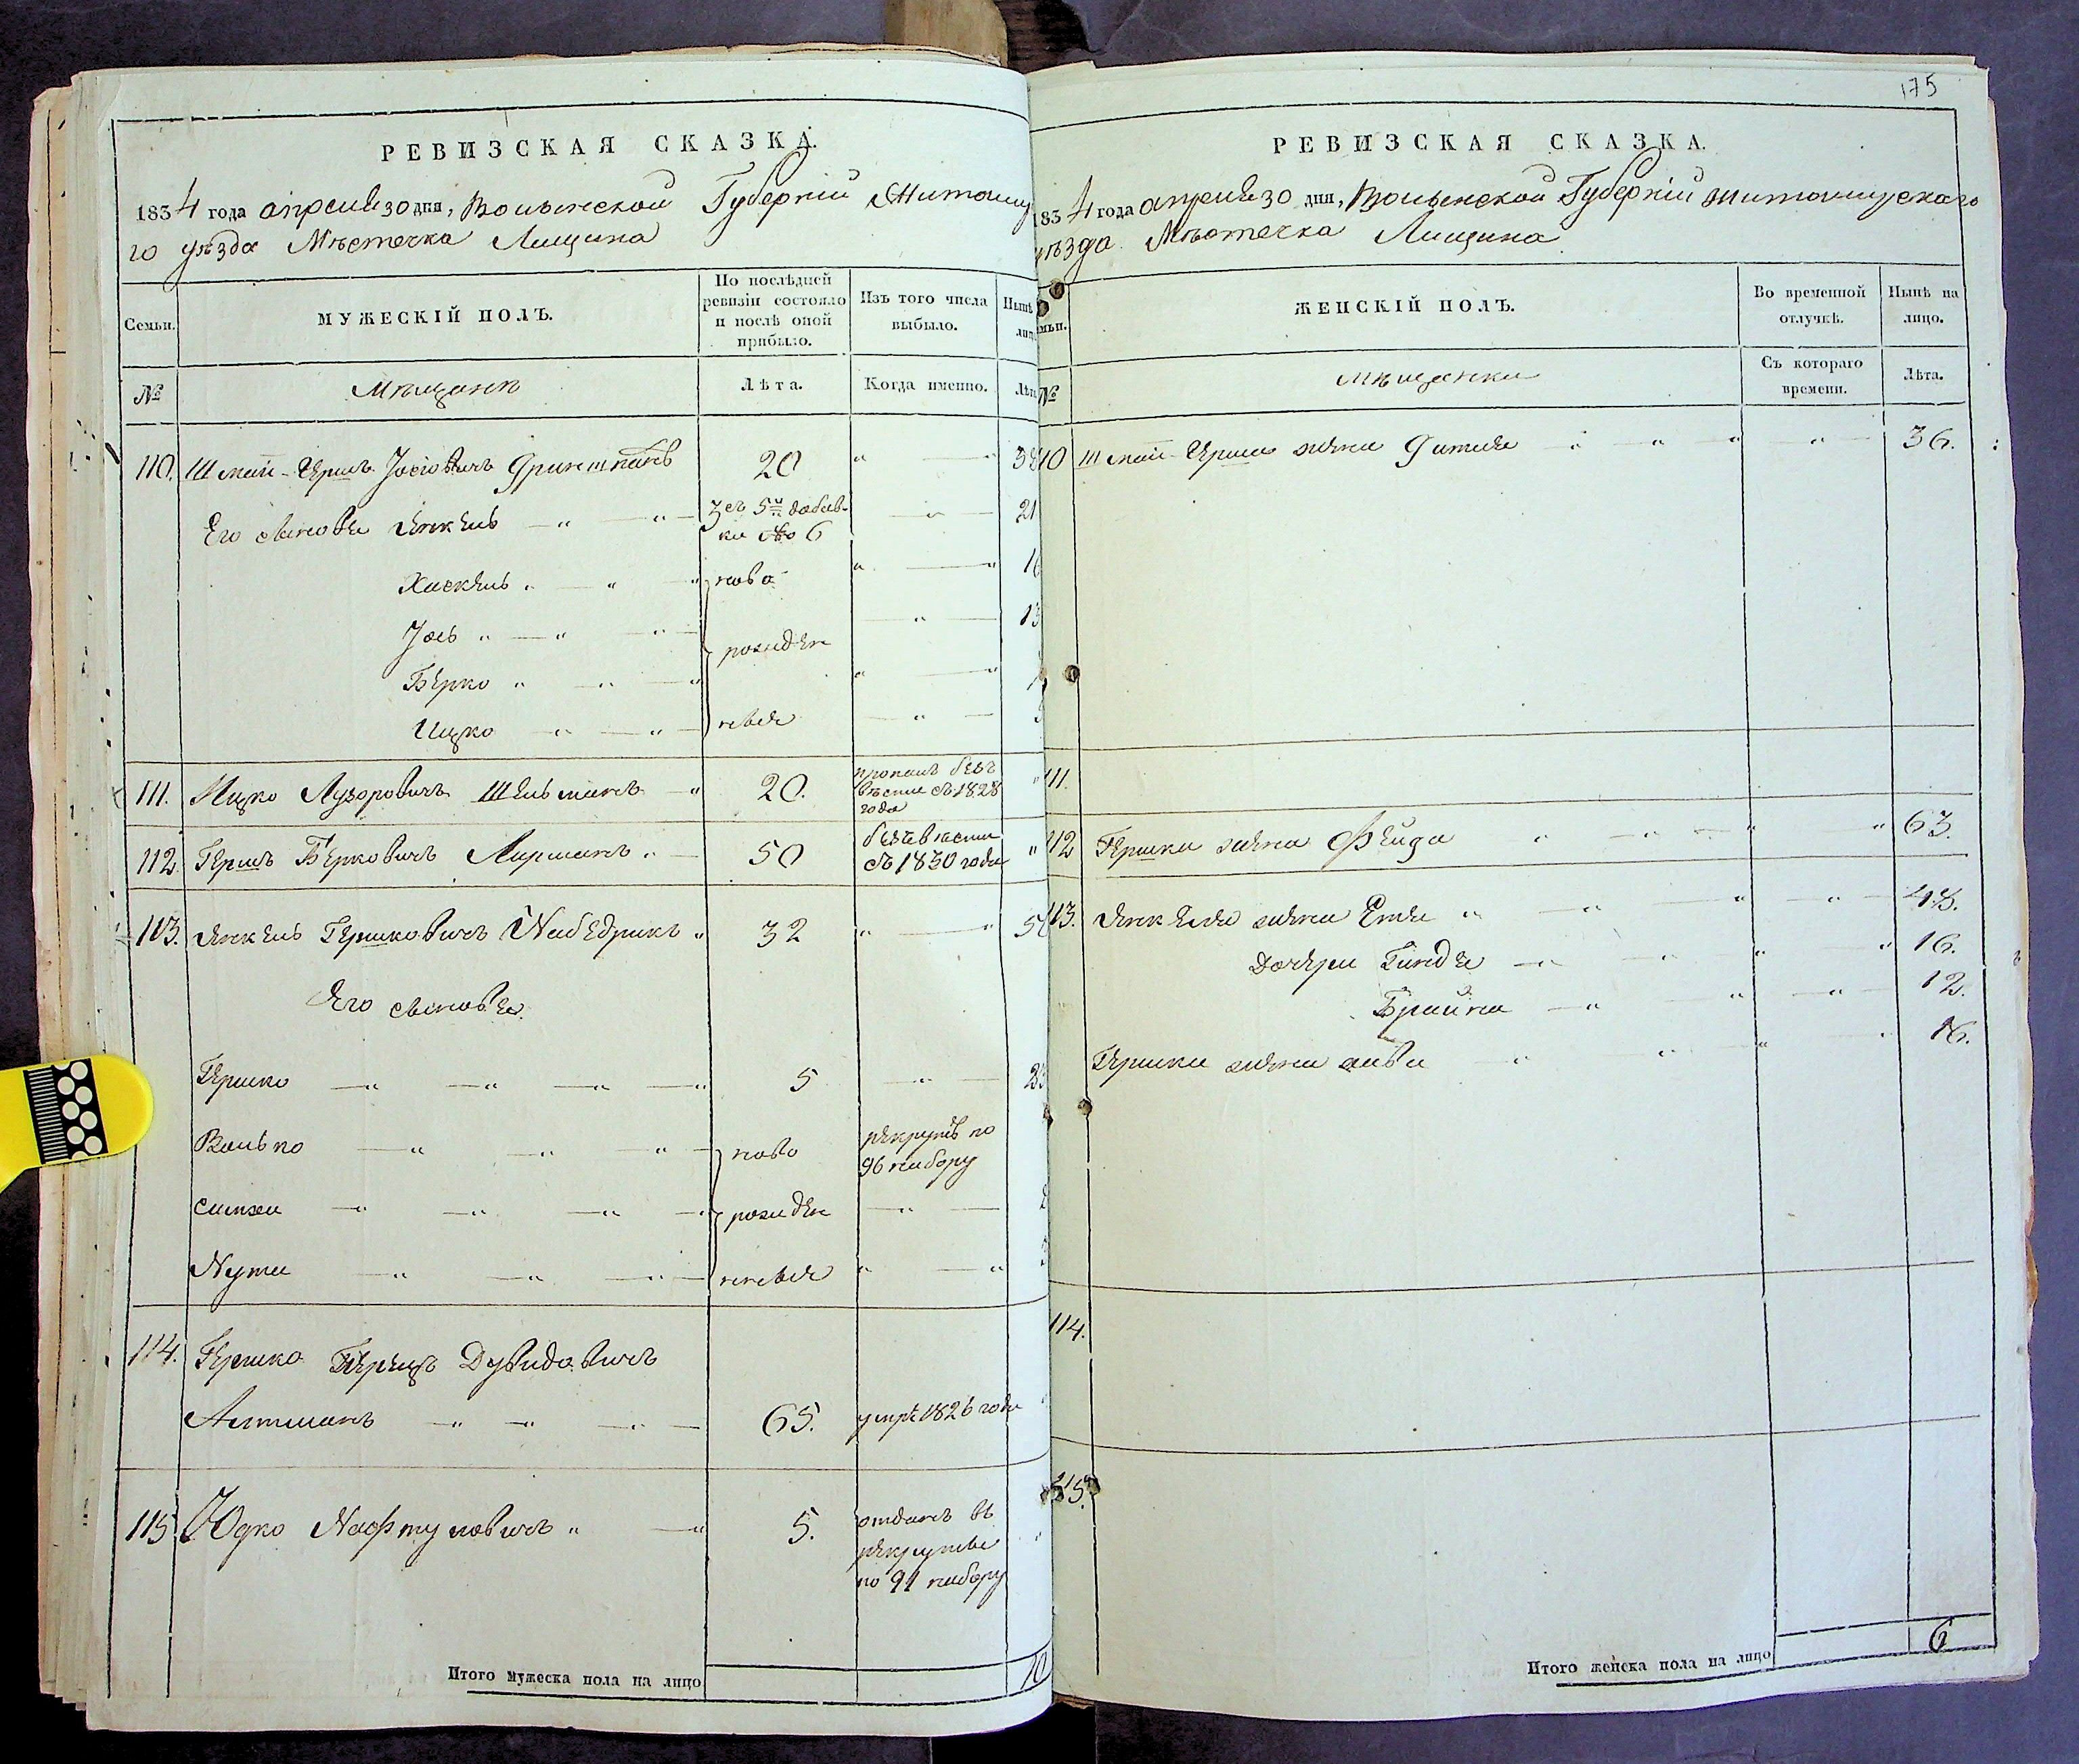 РЕВИЗСКАЯ СКАЗКА.
1834 года апреля 30 дня, Волынской Губерніи Житомир
го уѣзда Мѣстечка Лещина
Семьи.
МУЖЕСКІЙ ПОЛЪ.
По послѣдней
ревизіи состояло
и послѣ оной
прибыло.
Изъ того числа
выбыло.
Нынѣ
лиц
№
Мѣщанъ
Лѣта.
Когда именно.
Лѣта
110. Шмай-Гершъ Іосіовичъ 20 " " 38
Его сыновья Янкель " " 3 съ 5й добав- " 21
ки №о 6
Хаскель " " " ново " " 16
Іось " " " " 13
рожден
Берко " " " " "
Ицко " " ныя "
111. Ицко Лузоровичъ Шельманъ " 20. пропалъ безъ "
вѣсти съ 1828
года
112. Гершъ Берковичъ Лирманъ " 50 безъ вѣсти "
съ 1830 года
113. Янкель Гершковичъ Набедрикъ " 32 " " 50
Его сыновья
Гершко " " " " 5 " 23
Волько " " " ново рекрутъ по
96 набору
Симха " " " " рожден "
Нута " " " ныя " "
114. Гершко Перецъ Дувидовичъ
Алтманъ " " " 65. умре 1826 года
115 Юдко Нафтуловичъ " " 5. отданъ въ "
рекруты
по 91 набору
Итого мужеска пола на лицо 10
175
РЕВИЗСКАЯ СКАЗКА.
834 года апреля 30 дня, Волынской Губерніи Житомирскаго
уѣзда Мѣстечка Лещина
мьи.
ЖЕНСКІЙ ПОЛЪ.
Во временной
отлучкѣ.
Нынѣ на
лицо.
№
Мѣщанки
Съ котораго
времени.
Лѣта.
110 Шмай-Герша жена " " " " 36.
111.
112 Гершка жена Фейга " " " " 63.
113. Янкеля жена Етя " " " " 48.
дочери Гиндя " " " " 16.
Брайна " " " 12.
Гершка жена Хива " " " " 16.
114.
115.
Итого женска пола на лицо 6